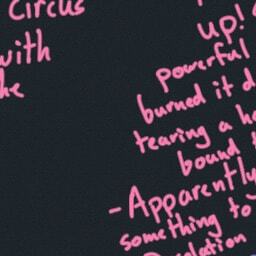 Circus
with
he
up!
powerful
burned it d
tearing a h
bound
- Apparently
something to
Desolation